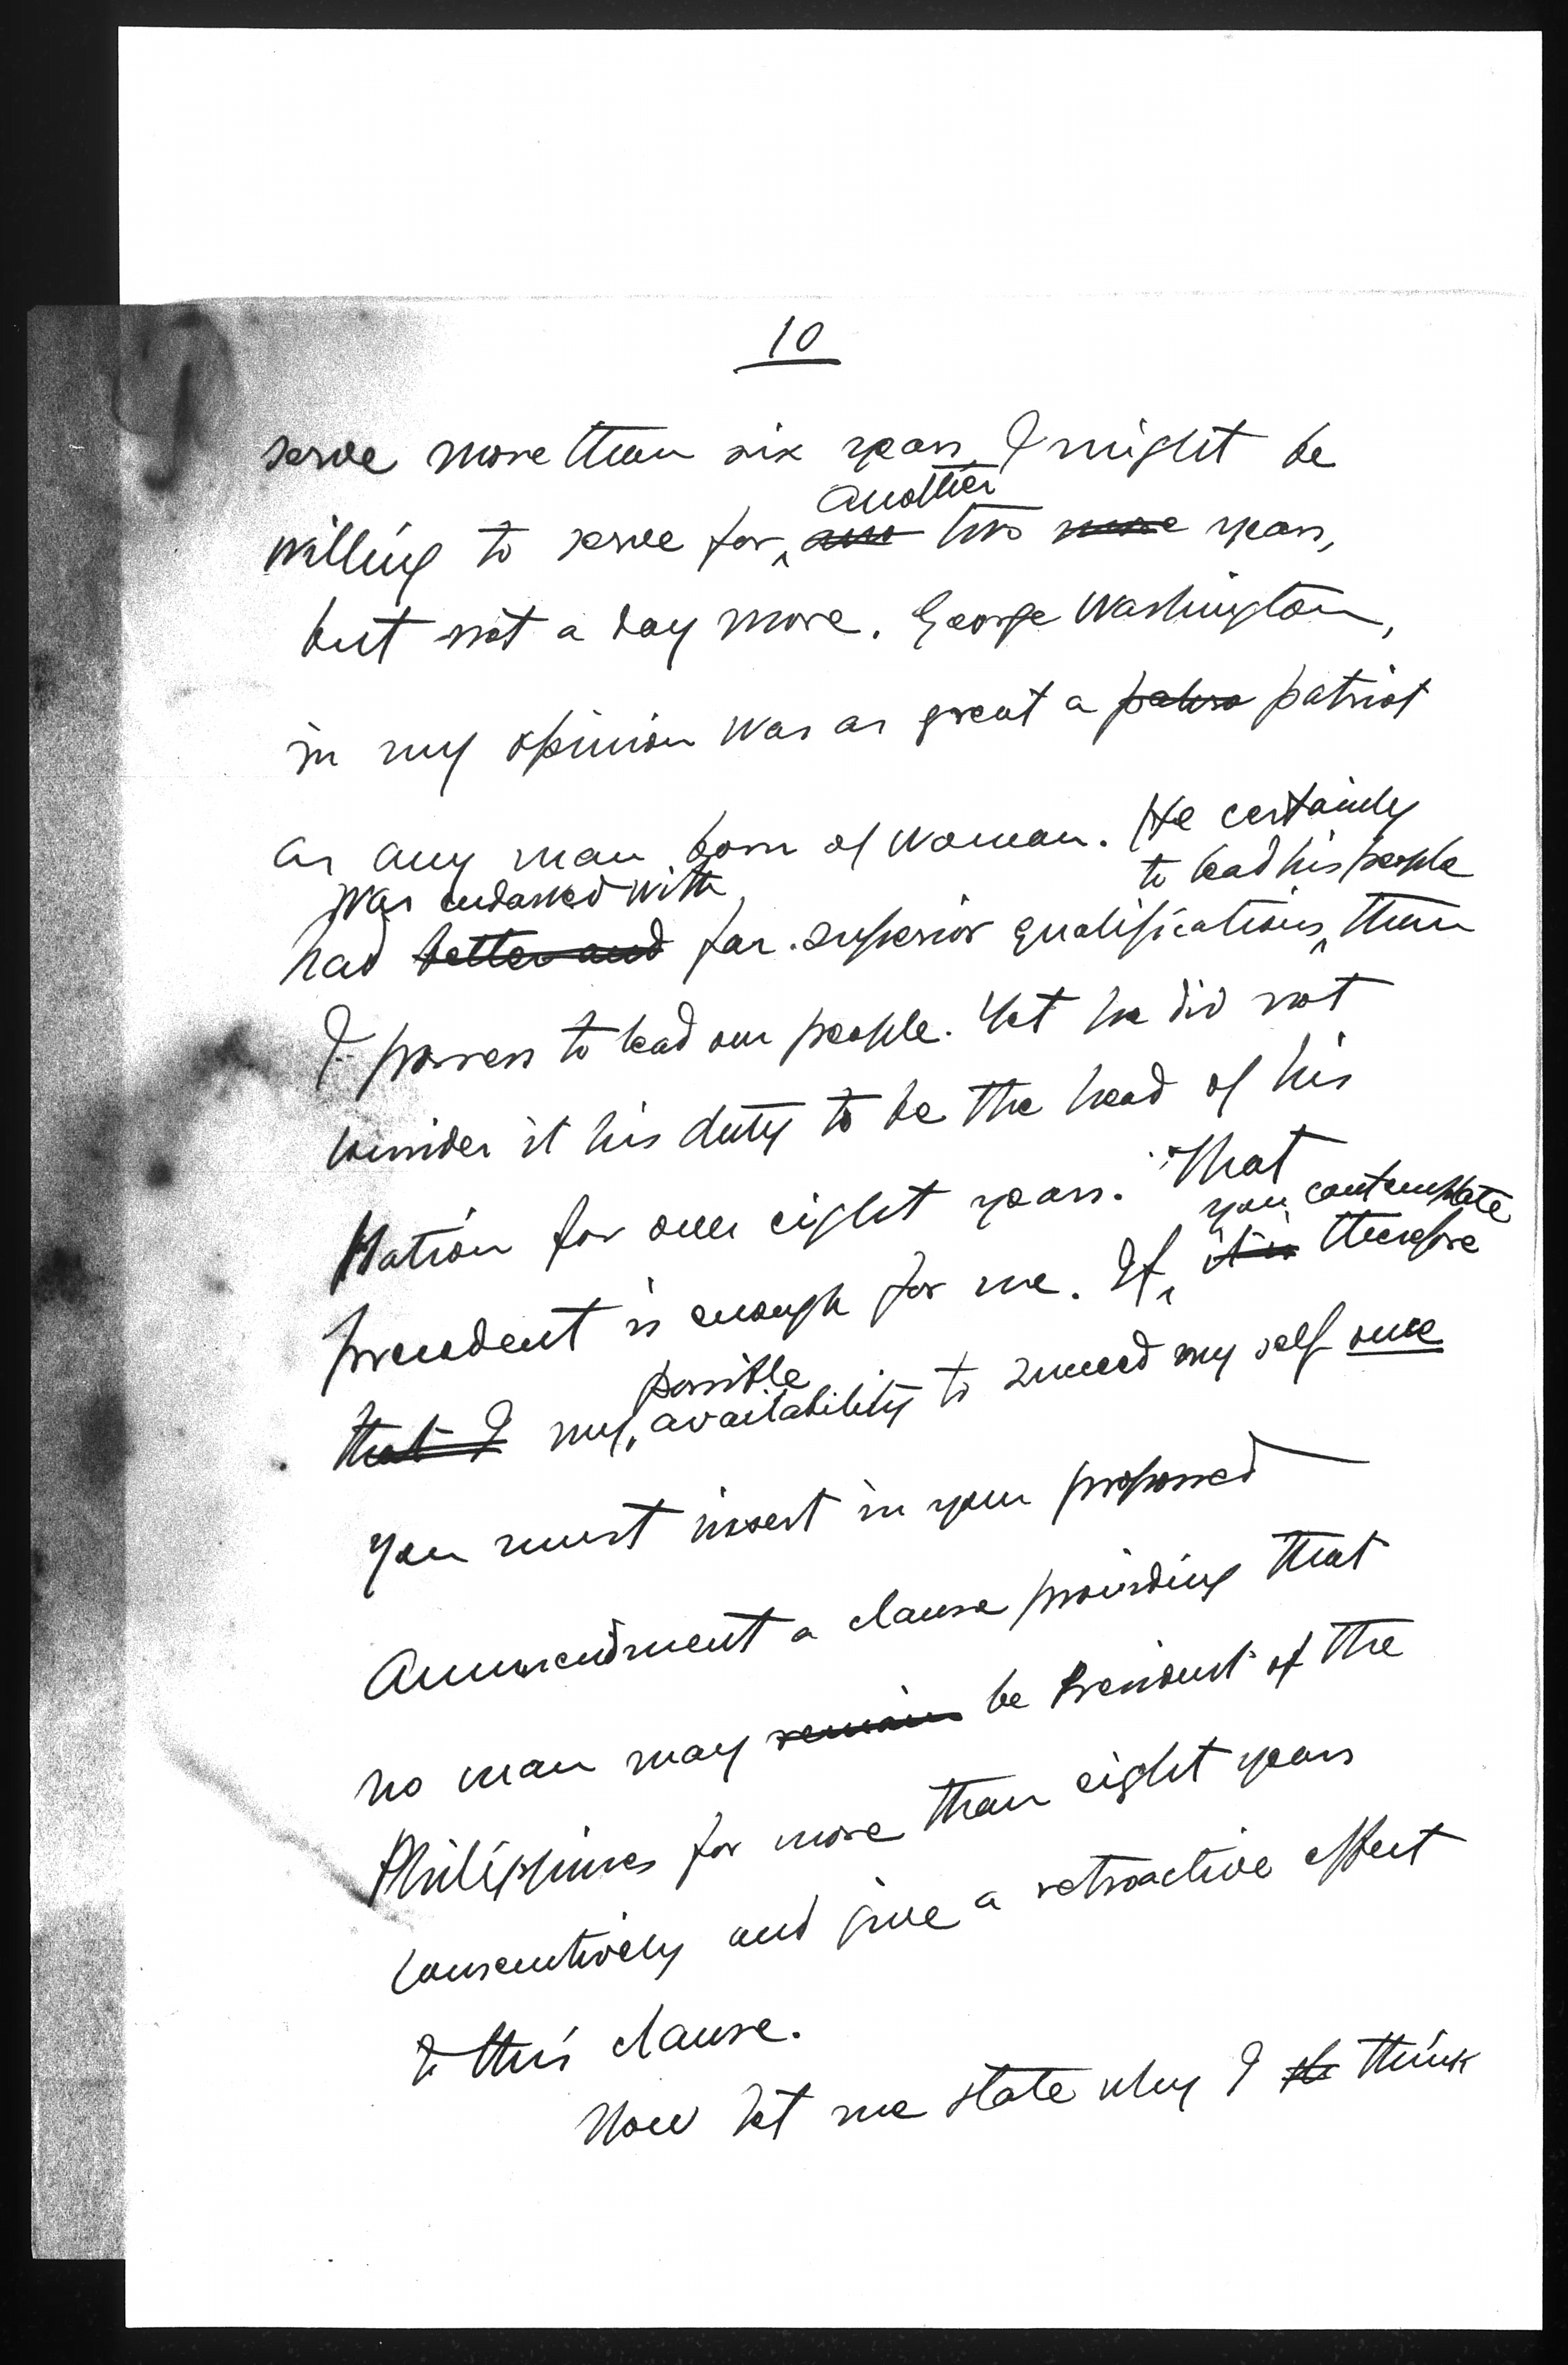 10
serve more than six years, I might be
another
willing to serve for two more years,
but not a day more. George Washington,
in my opinion was as great a patriot
as any man born of woman. He certainly
was endowed with to lead his people
had better and far superior qualifications than
I possess to lead our people. Yet he did not
consider it his duty to be the head of his
Nation for over eight years. That
you contemplate
precedent is enough for me. If it is therefore
possible
that I my availability to succeed my self once
you must insert in your proposed
Ammendment a clause providing that
no man may remain be President of the
Philippines for more than eight years
consecutively and give a retroactive effect
to this clause.
Now let me state why I think